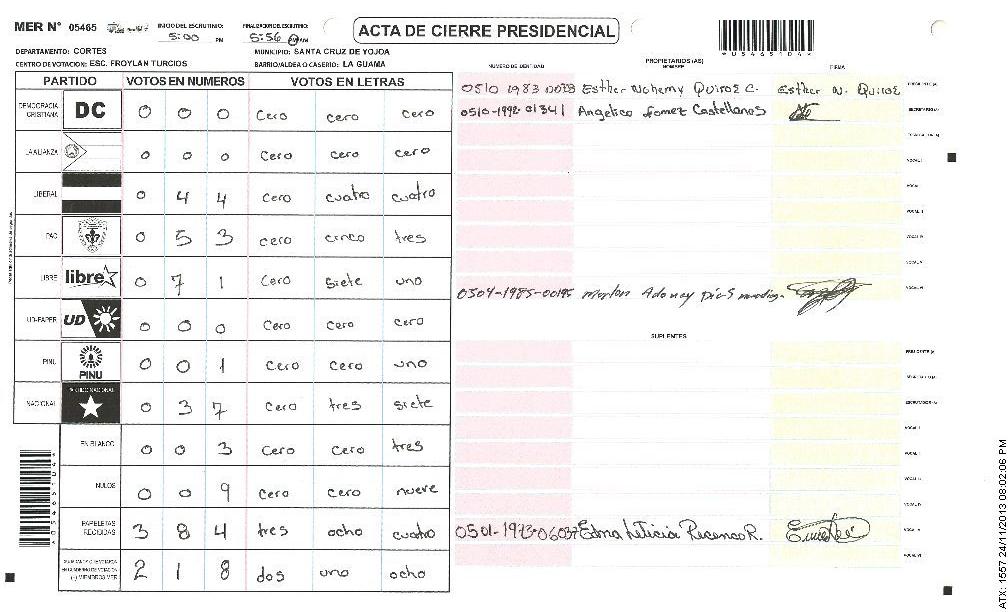 MER N° 05465
INICIO DEL ESCRUTINIO: 5:00 PM
FINALIZACION DEL ESCRUTINIO: 5:56 PM
ACTA DE CIERRE PRESIDENCIAL
DEPARTAMENTO: CORTES
MUNICIPIO: SANTA CRUZ DE YOJOA
CENTRO DE VOTACION: ESC. FROYLAN TURCIOS
BARRIO/ALDEA O CASERIO: LA GUAMA
PARTIDO VOTOS EN NUMEROS VOTOS EN LETRAS
DEMOCRACIA CRISTIANA DC 0 0 0 Cero cero cero
LA ALIANZA 0 0 0 Cero cero cero
LIBERAL 0 4 4 Cero cuatro cuatro
PAC 0 5 3 cero cinco tres
LIBRE libre 0 7 1 Cero siete uno
UD-FAPER UD 0 0 0 Cero Cero cero
PINU PINU 0 0 1 Cero cero uno
NACIONAL 0 3 7 Cero tres siete
EN BLANCO 0 0 3 Cero Cero tres
NULOS 0 0 9 Cero cero nueve
PAPELETAS RECIBIDAS 3 8 4 tres ocho cuatro
(+) MIEMBROS MER 2 1 8 dos uno ocho
NUMERO DE IDENTIDAD
PROPIETARIOS (AS)
NOMBRE
FIRMA
Esther Nohemy Quiroz C. Esther N. Quiroz
0510-1992-01341 Angelica Gomez Castellanos
0504-1985-00195
SUPLENTES
Edna Leticia
*05465104*
ATX: 1557 24/11/2013 08:02:06 PM